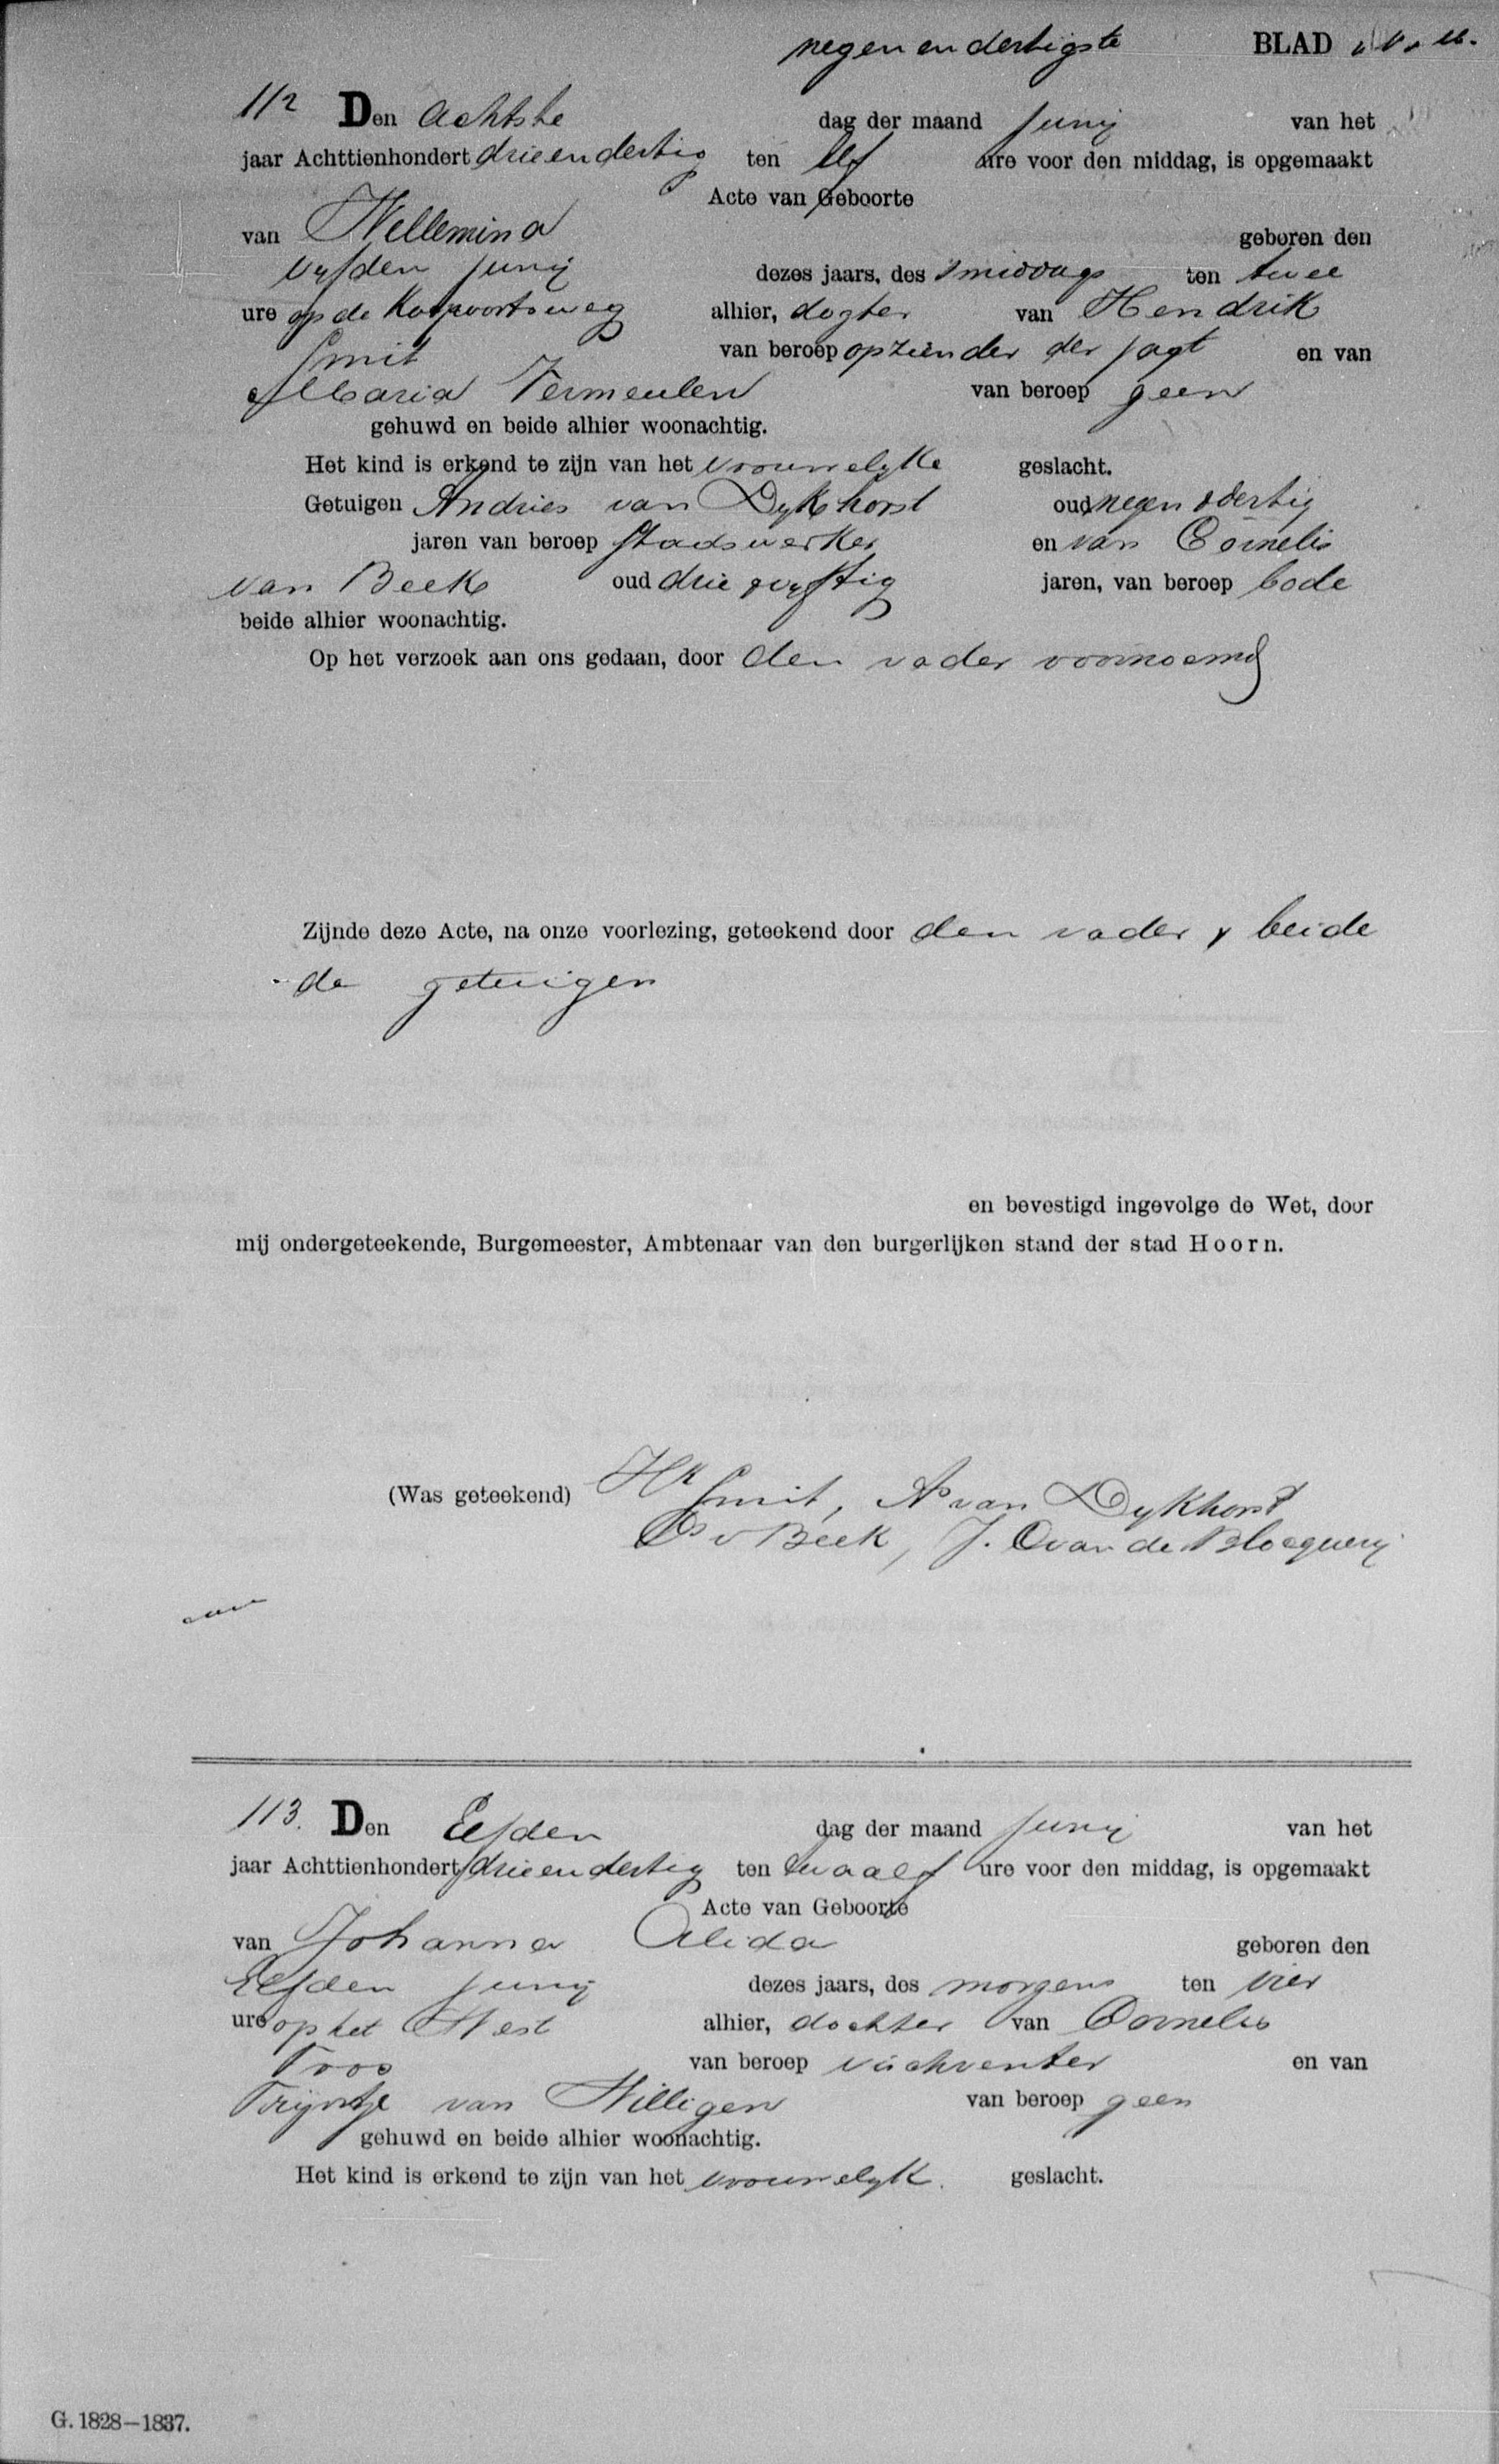 negen en dertigste BLAD
112 Den achtste dag der maand Junij van het
jaar Achttienhondert drie en dertig ten elf ure voor den middag, is opgemaakt
Acte van Geboorte
van Willemina geboren den
vyfden Junij dezes jaars, des smiddags ten twee
ure op de Koepoortsweg alhier, dogter van Hendrik
Smit van beroep opziender der jagt en van
Maria Vermeulen van beroep geen
gehuwd en beide alhier woonachtig.
Het kind is erkend te zijn van het vrouwelyke geslacht.
Getuigen Andries van Dykhorst oud negen & dertig
jaren van beroep stadswerker en van Cornelis
van Beek oud drie & vyftig jaren, van beroep bode
beide alhier woonachtig.
Op het verzoek aan ons gedaan, door den vader voornoemd
Zijnde deze Acte, na onze voorlezing, geteekend door den vader & beide
de getuigen
en bevestigd ingevolge de Wet, door
mij ondergeteekende, Burgemeester, Ambtenaar van den burgerlijken stand der stad Hoorn.
(Was geteekend) Hk Smit, As van Dykhorst
Cs v Beek, J. C van de Blocquerij
113. Den Elfden dag der maand Junij van het
jaar Achttienhondert drie en dertig ten twaalf ure voor den middag, is opgemaakt
Acte van Geboorte
van Johanna Alida geboren den
Elfden Junij dezes jaars, des morgens ten vier
ure op het West alhier, dochter van Cornelis
Troos van beroep vischventer en van
Trijntje van Willigen van beroep geen
gehuwd en beide alhier woonachtig.
Het kind is erkend te zijn van het vrouwelyk geslacht.
G. 1828–1837.